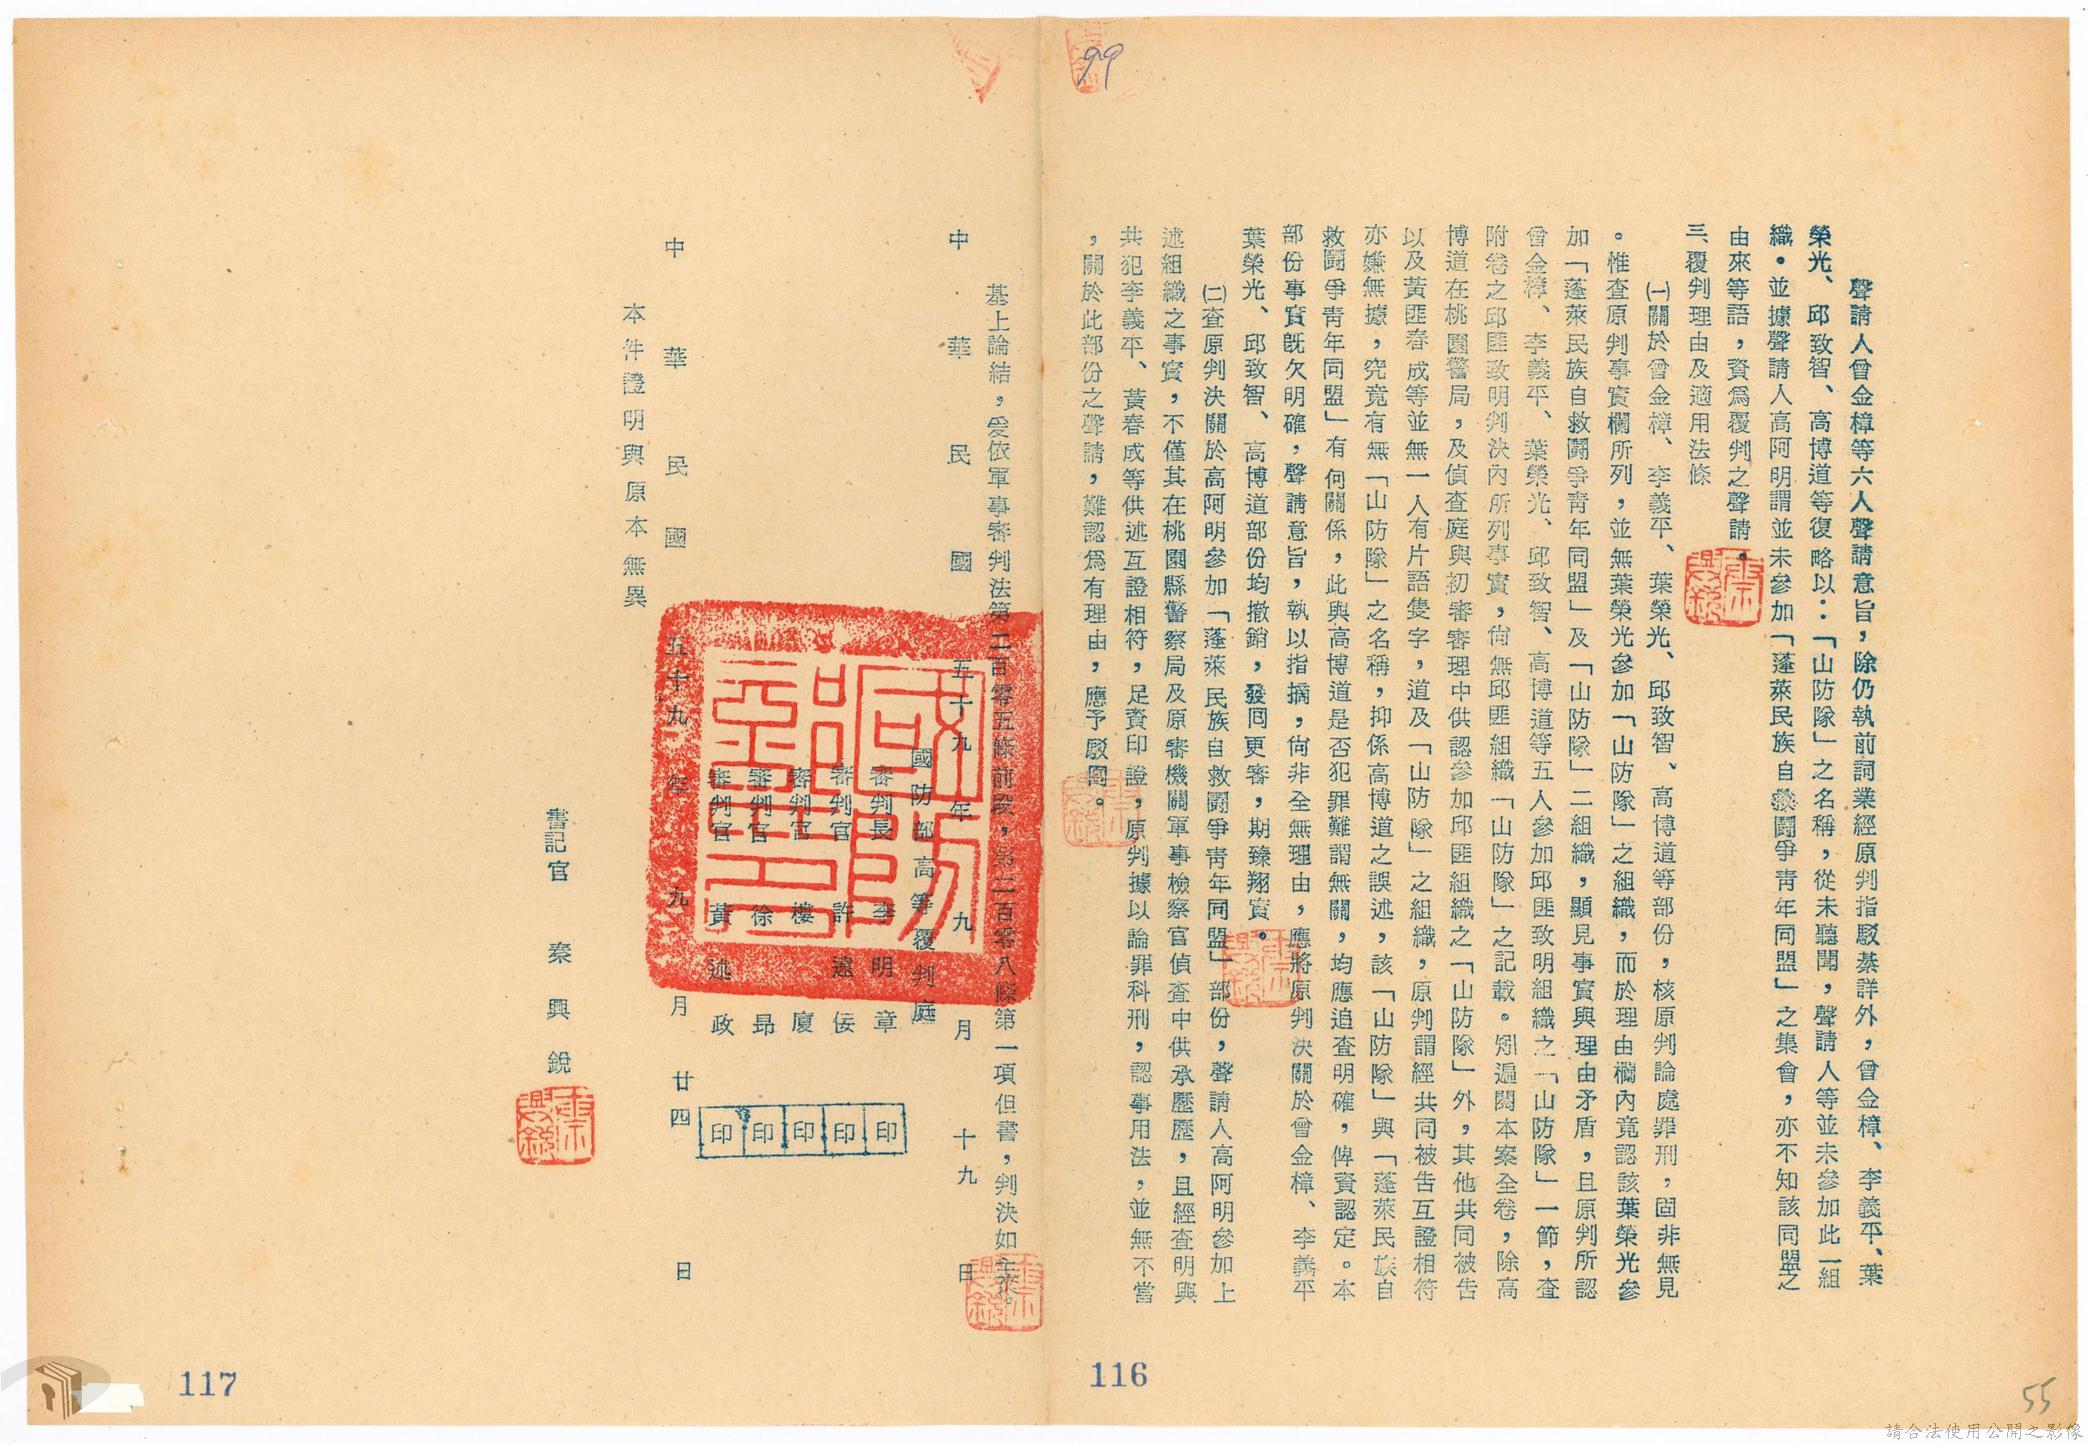 99
聲請人曾金樟等六人聲請意旨，除仍執前詞業經原判指駁綦詳外，曾金樟、李義平、葉
榮光、邱致智、高博道等復略以：「山防隊」之名稱，從未聽聞，聲請人等並未參加此一組
織。並據聲請人高阿明謂並未參加「蓬萊民族自救鬪爭青年同盟」之集會，亦不知該同盟之
由來等語，資為覆判之聲請。
三、覆判理由及適用法條
㈠關於曾金樟、李義平、葉榮光、邱致智、高博道等部份，核原判論處罪刑，固非無見
。惟查原判事實欄所列，並無葉榮光參加「山防隊」之組織，而於理由欄內竟認該葉榮光參
加「蓬萊民族自救鬪爭青年同盟」及「山防隊」二組織，顯見事實與理由矛盾，且原判所認
曾金樟、李義平、葉榮光、邱致智、高博道等五人參加邱匪致明組織之「山防隊」一節，查
附卷之邱匪致明判決內所列事實，尙無邱匪組織「山防隊」之記載。矧遍閱本案全卷，除高
博道在桃園警局，及偵查庭與初審審理中供認參加邱匪組織之「山防隊」外，其他共同被告
以及黃匪春成等並無一人有片語隻字，道及「山防隊」之組織，原判謂經共同被告互證相符
亦嫌無據，究竟有無「山防隊」之名稱，抑係高博道之誤述，該「山防隊」與「蓬萊民族自
救鬪爭青年同盟」有何關係，此與高博道是否犯罪難謂無關，均應追查明確，俾資認定。本
部份事實旣欠明確，聲請意旨，執以指摘，尙非全無理由，應將原判決關於曾金樟、李義平
葉榮光、邱致智、高博道部份均撤銷，發回更審，期臻翔實。
㈡查原判決關於高阿明參加「蓬萊民族自救鬪爭青年同盟」部份，聲請人高阿明參加上
述組織之事實，不僅其在桃園縣警察局及原審機關軍事檢察官偵查中供承歷歷，且經查明與
共犯李義平、黃春成等供述互證相符，足資印證，原判據以論罪科刑，認事用法，並無不當
，關於此部份之聲請，難認為有理由，應予駁回。
116
55
基上論結，爰依軍事審判法第二百零五條前段，第二百零八條第一項但書，判決如主文。
中華民國五十九年九月十九日
國防部高等覆判庭
審判長 李明章 印
審判官 許遠佞 印
審判官 樓廈 印
審判官 徐昂 印
審判官 黃述政 印
中華民國五十九年九月廿四日
本件證明與原本無異
書記官 秦興銳
117
請合法使用公開之影像